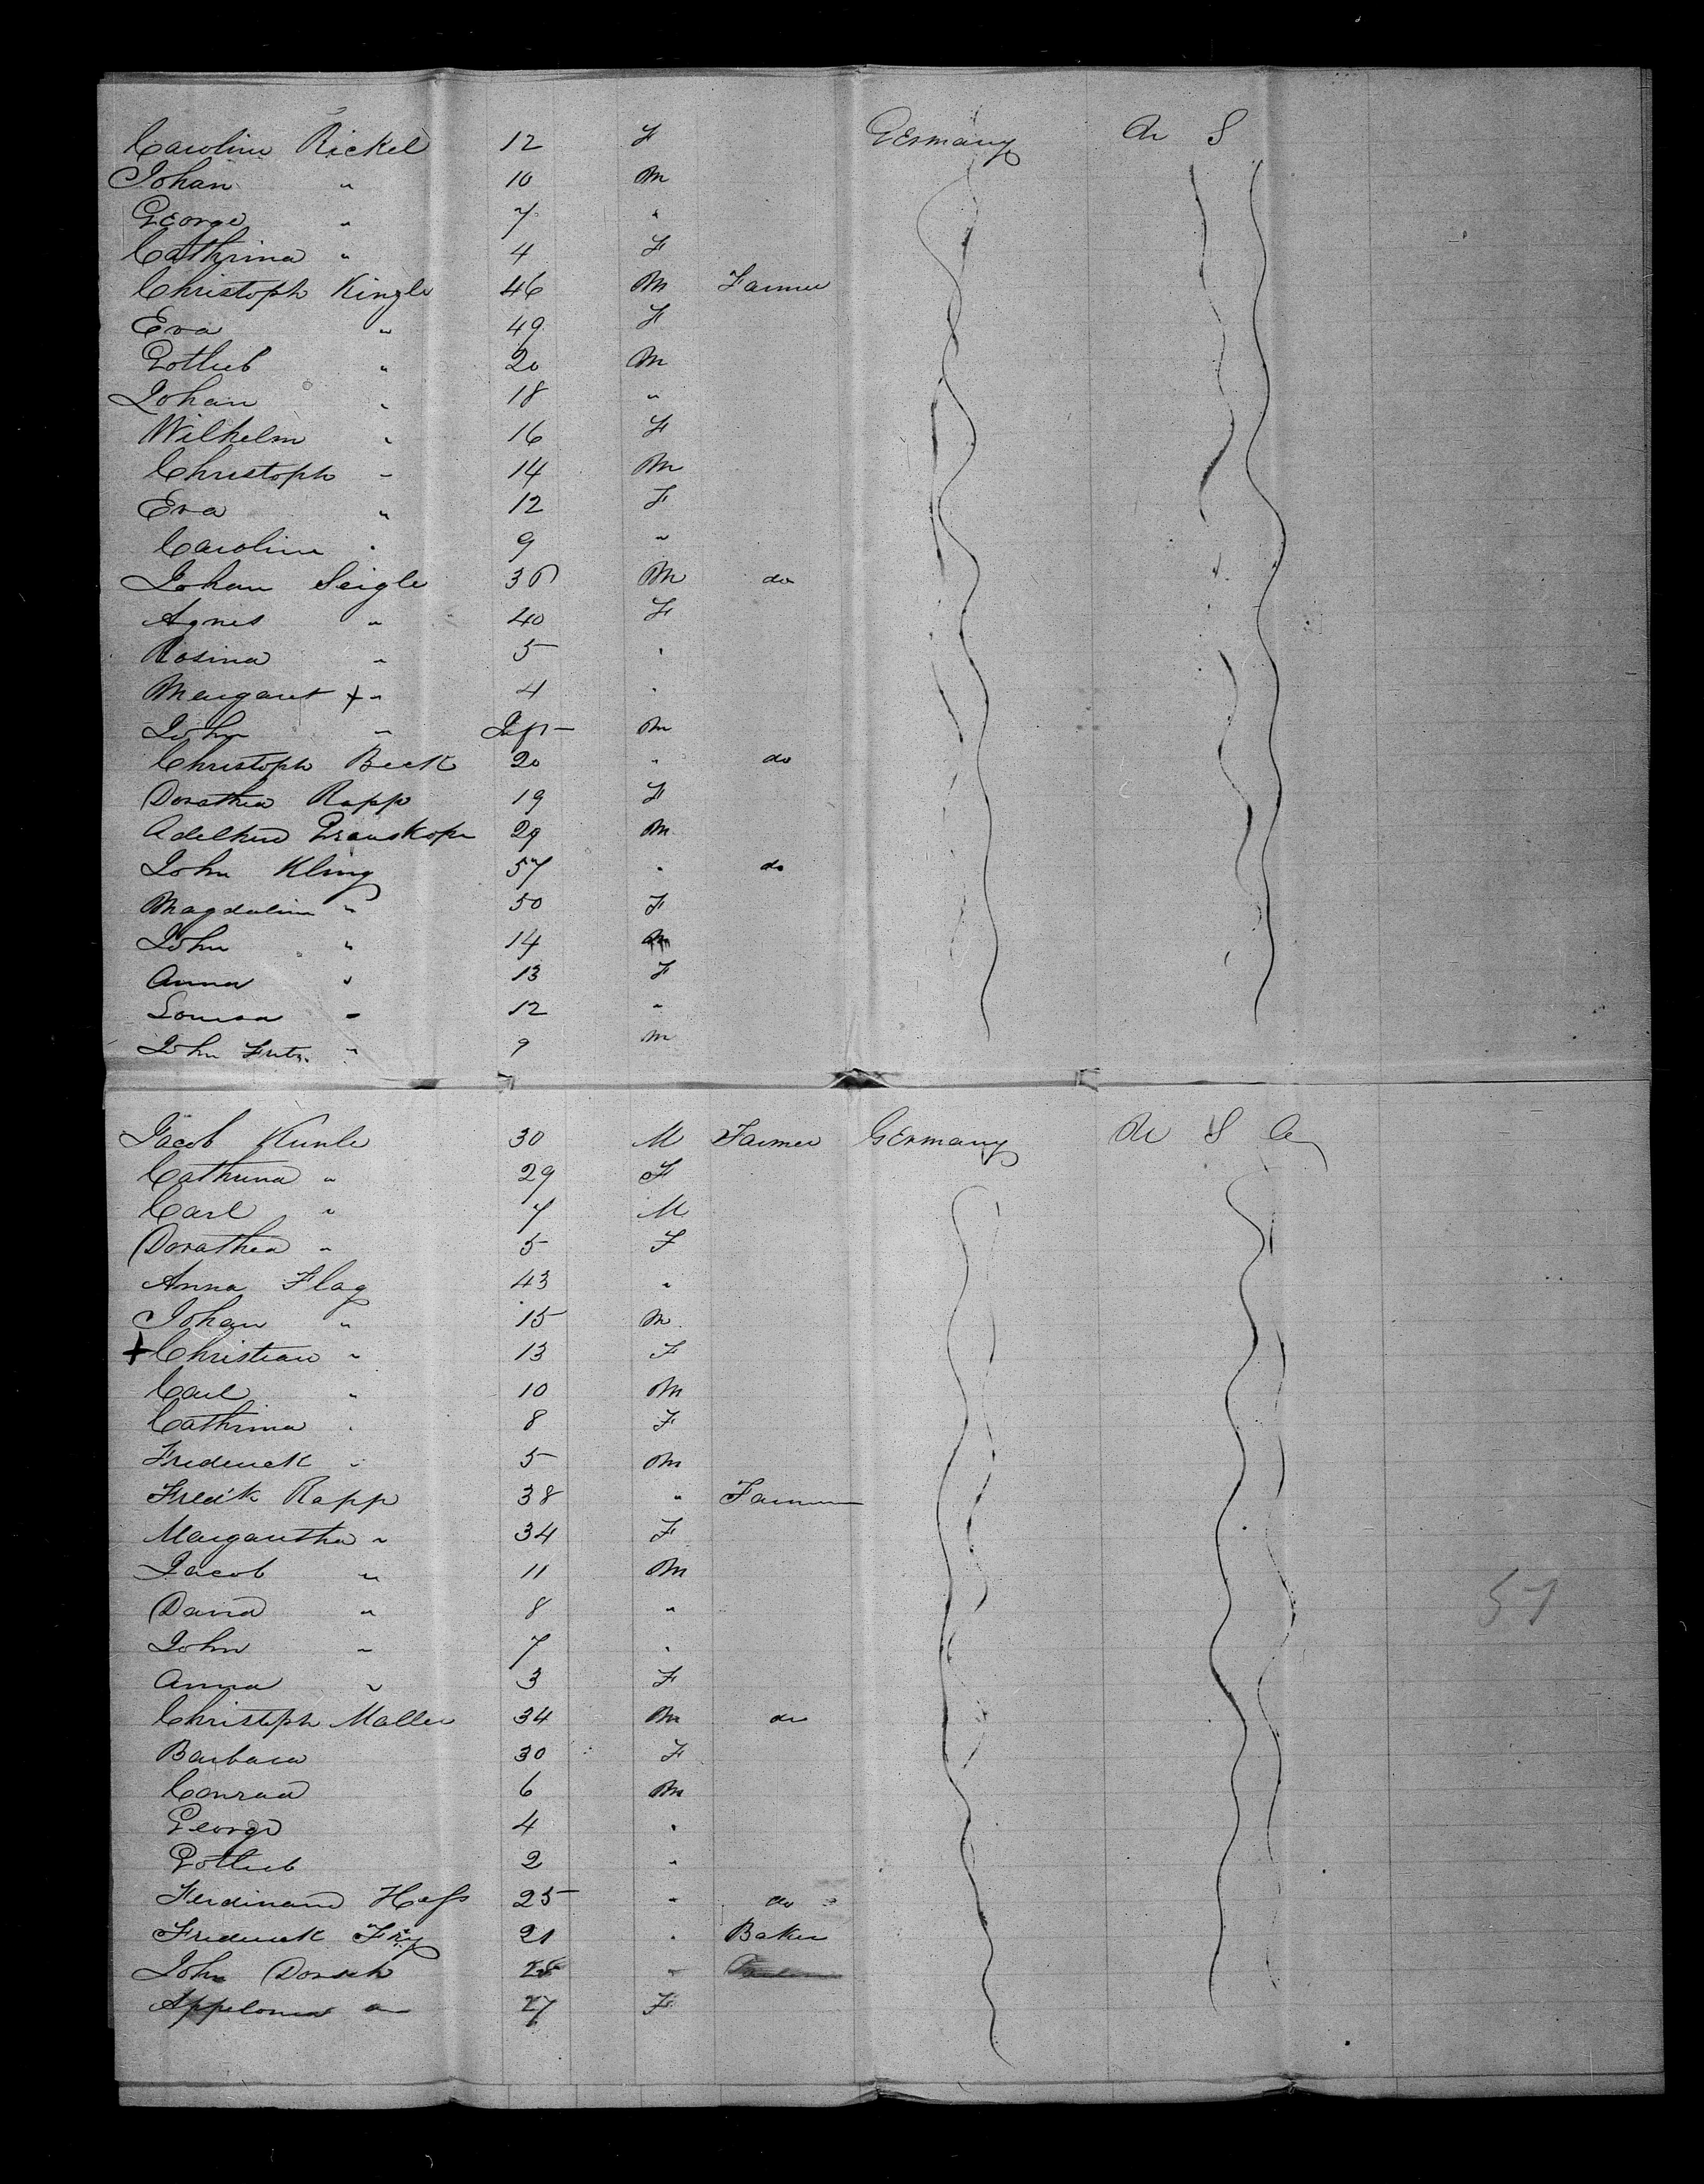 Caroline Rickel 12 F Germany U S
Johan " 10 M
George " 7 "
Cathrina " 4 F
Christoph Kingle 46 M Farmer
Eva " 49 F
Gotlieb " 20 M
Johan " 18 "
Wilhelm " 16 F
Christoph " 14 M
Eva " 12 F
Caroline " 9 "
Johan Seigle 36 M do
Agnes " 40 F
Rosina " 5 "
Margaret + " 4 "
John " Inft M
Christoph Beck 20 " do
Dorathea Rapp 19 F
29 M
John Kling 57 " do
Magdalina " 50 F
John " 14 M
Anna " 13 F
Louisa " 12 "
John Fritz " 9 M
Jacob Kunle 30 M Farmer Germany U S
Cathrina " 29 F
Carl " 7 M
Dorathea " 5 F
Anna Flag 43 "
Johan " 15 M
+ Christian " 13 F
Carl " 10 M
Cathrina " 8 F
Frederick " 5 M
Fredk Rapp 38 " Farmer
Margaretha " 34 F
Jacob " 11 M
David " 8 "
John " 7 "
Anna " 3 F
Christoph Maller 34 M do
Barbara 30 F
Conrad 6 M
George 4 "
Gotlieb 2 "
Ferdinand Hess 25 " do
Frederick Frÿ 21 " Baker
John Dorsch 28 "
Appelonia " 27 F
57